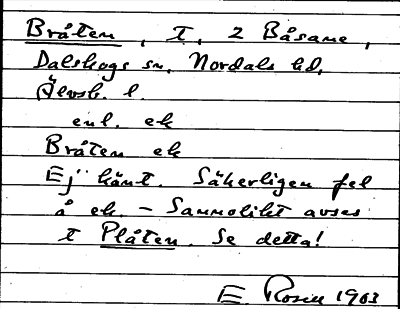 Bråten, t, 2 Båsane,
Dalskogs sn, Nordals hd,
Älvsb. l.
enl. ek
Bråten ek
Ej känt. Säkerligen fel
å ek. – Sannolikt avses
t Plåten. Se detta!
E. Rosell 1963